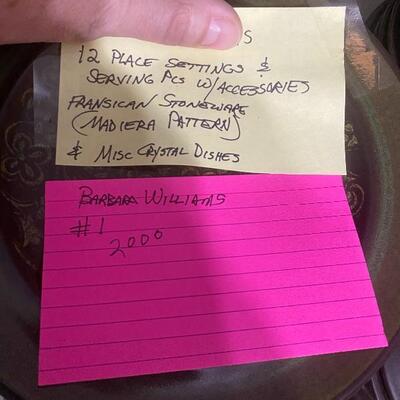 12 PLACE SETTINGS &
SERVING PCS W/ACCESSORIES
FRANSICAN STONEWARE
(MADIERA PATTERN)
& MISC CRYSTAL DISHES
BARBARA WILLIAMS
#1
2000